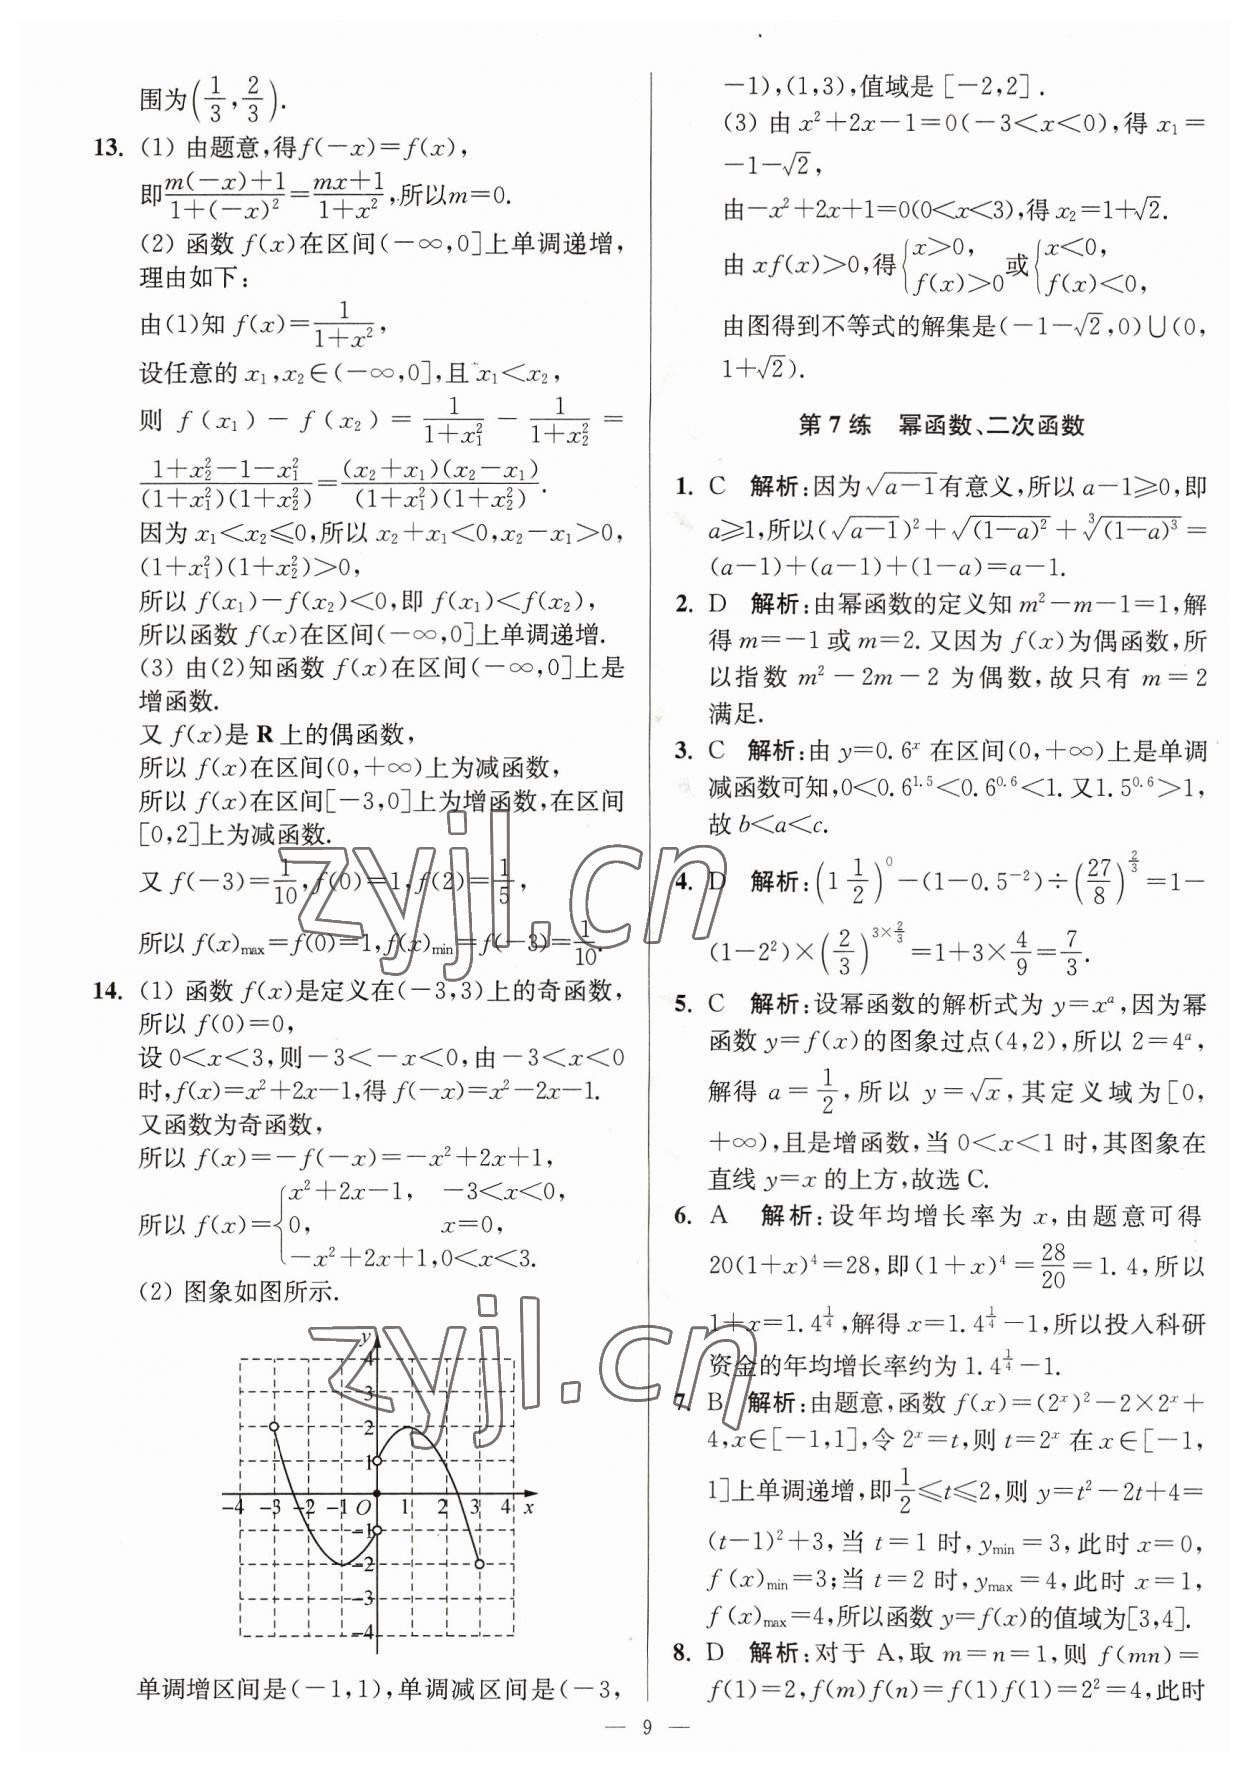 围为(1/3,2/3).
13. (1) 由题意,得f(−x)=f(x),
即(m(−x)+1)/(1+(−x)²)=(mx+1)/(1+x²),所以m=0.
(2) 函数 f(x)在区间(−∞,0]上单调递增,
理由如下:
由(1)知 f(x)=1/(1+x²),
设任意的 x₁,x₂∈(−∞,0],且 x₁<x₂,
则 f(x₁)−f(x₂)=1/(1+x₁²)−1/(1+x₂²)=
(1+x₂²−1−x₁²)/((1+x₁²)(1+x₂²))=((x₂+x₁)(x₂−x₁))/((1+x₁²)(1+x₂²)).
因为 x₁<x₂≤0,所以 x₂+x₁<0,x₂−x₁>0,
(1+x₁²)(1+x₂²)>0,
所以 f(x₁)−f(x₂)<0,即 f(x₁)<f(x₂),
所以函数 f(x)在区间(−∞,0]上单调递增.
(3) 由(2)知函数 f(x)在区间(−∞,0]上是
增函数.
又 f(x)是 R 上的偶函数,
所以 f(x)在区间(0,+∞)上为减函数,
所以 f(x)在区间[−3,0]上为增函数,在区间
[0,2]上为减函数.
又 f(−3)=1/10,f(0)=1,f(2)=1/5,
所以 f(x)max=f(0)=1,f(x)min=f(−3)=1/10.
14. (1) 函数 f(x)是定义在(−3,3)上的奇函数,
所以 f(0)=0,
设 0<x<3,则−3<−x<0,由−3<x<0
时,f(x)=x²+2x−1,得 f(−x)=x²−2x−1.
又函数为奇函数,
所以 f(x)=−f(−x)=−x²+2x+1,
x²+2x−1, −3<x<0,
所以 f(x)={0, x=0,
−x²+2x+1,0<x<3.
(2) 图象如图所示.
y
4
3
2
1
−4 −3 −2 −1 O 1 2 3 4 x
−1
−2
−3
−4
单调增区间是(−1,1),单调减区间是(−3,
−1),(1,3),值域是[−2,2].
(3) 由 x²+2x−1=0(−3<x<0),得 x₁=
−1−√2,
由−x²+2x+1=0(0<x<3),得 x₂=1+√2.
由 xf(x)>0,得{x>0, f(x)>0 或{x<0, f(x)<0,
由图得到不等式的解集是(−1−√2,0)∪(0,
1+√2).
第 7 练 幂函数、二次函数
1. C 解析:因为√(a−1)有意义,所以 a−1≥0,即
a≥1,所以(√(a−1))²+√((1−a)²)+∛((1−a)³)=
(a−1)+(a−1)+(1−a)=a−1.
2. D 解析:由幂函数的定义知 m²−m−1=1,解
得 m=−1 或 m=2.又因为 f(x)为偶函数,所
以指数 m²−2m−2 为偶数,故只有 m=2
满足.
3. C 解析:由 y=0.6ˣ 在区间(0,+∞)上是单调
减函数可知,0<0.6^1.5<0.6^0.6<1.又1.5^0.6>1,
故 b<a<c.
4. D 解析:(1 1/2)⁰−(1−0.5⁻²)÷(27/8)^(2/3)=1−
(1−2²)×(2/3)^(3×2/3)=1+3×4/9=7/3.
5. C 解析:设幂函数的解析式为 y=x^a,因为幂
函数 y=f(x)的图象过点(4,2),所以 2=4^a,
解得 a=1/2,所以 y=√x,其定义域为[0,
+∞),且是增函数,当 0<x<1 时,其图象在
直线 y=x 的上方,故选 C.
6. A 解析:设年均增长率为 x,由题意可得
20(1+x)⁴=28,即(1+x)⁴=28/20=1.4,所以
1+x=1.4^(1/4),解得 x=1.4^(1/4)−1,所以投入科研
资金的年均增长率约为 1.4^(1/4)−1.
7. B 解析:由题意,函数 f(x)=(2ˣ)²−2×2ˣ+
4,x∈[−1,1],令 2ˣ=t,则 t=2ˣ 在 x∈[−1,
1]上单调递增,即1/2≤t≤2,则 y=t²−2t+4=
(t−1)²+3,当 t=1 时,ymin=3,此时 x=0,
f(x)min=3;当 t=2 时,ymax=4,此时 x=1,
f(x)max=4,所以函数 y=f(x)的值域为[3,4].
8. D 解析:对于 A,取 m=n=1,则 f(mn)=
f(1)=2,f(m)f(n)=f(1)f(1)=2²=4,此时
— 9 —
zyjl.cn
zyjl.cn